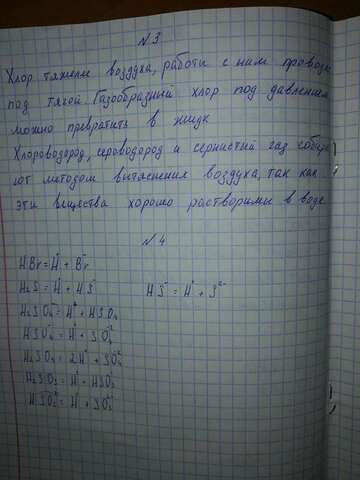 N3
Хлор тяжелее воздуха, работы с ним проводя
под тягой. Газообразный хлор под давлением
можно превратить в жидк
Хлороводород, сероводород и сернистый газ собира
ют методом вытяснения воздуха, так как
эти вещества хорошо растворимы в воде
N4
HBr = H⁺ + Br⁻
H₂S = H⁺ + HS⁻
HS⁻ = H⁺ + S²⁻
H₂SO₄ = H⁺ + HSO₄
HSO₄⁻ = H⁺ + SO₄²⁻
H₂SO₄ = 2H⁺ + SO₄²⁻
H₂SO₃ = H⁺ + HSO₃⁻
HSO₃⁻ = H⁺ + SO₃²⁻